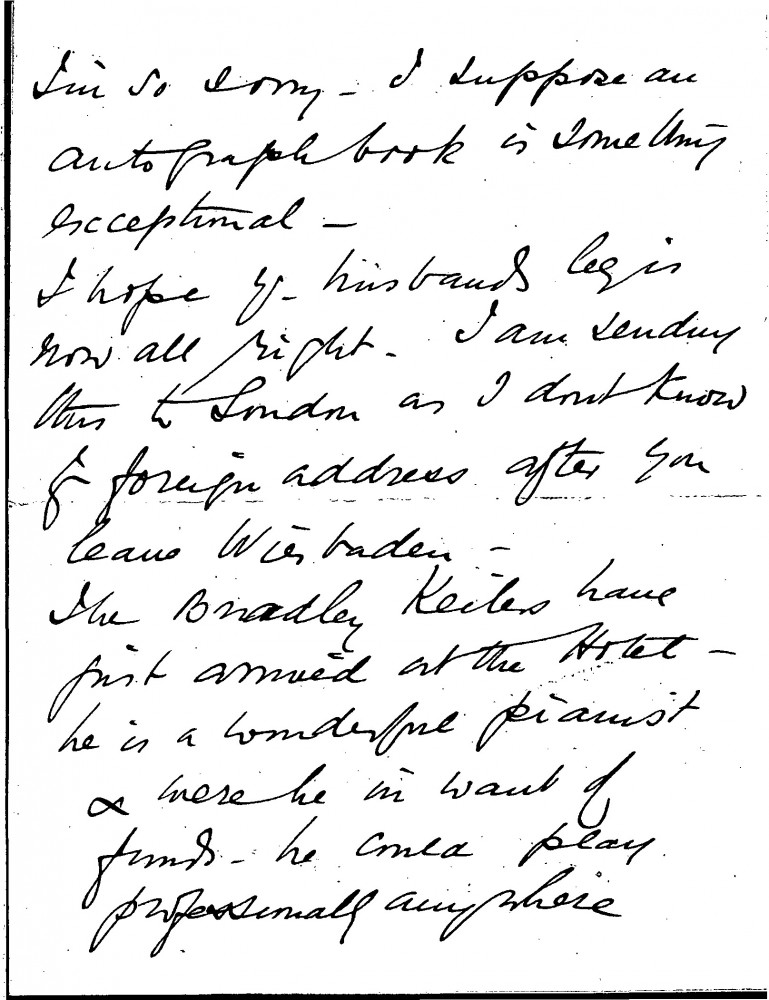 I'm so sorry - I suppose an
autograph book is something
exceptional -
I hope yr- husbands leg is
now all right - I am sending
this to London as I dont know
yr foreign address after you
leave Wiesbaden -
The Bradley Keilers have
just arrived at the Hotel -
he is a wonderful pianist
& were he in want of
funds - he could play
professionally anywhere